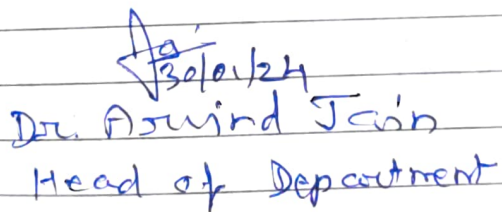 30/01/24
Dr. Arvind Jain
Head of Department